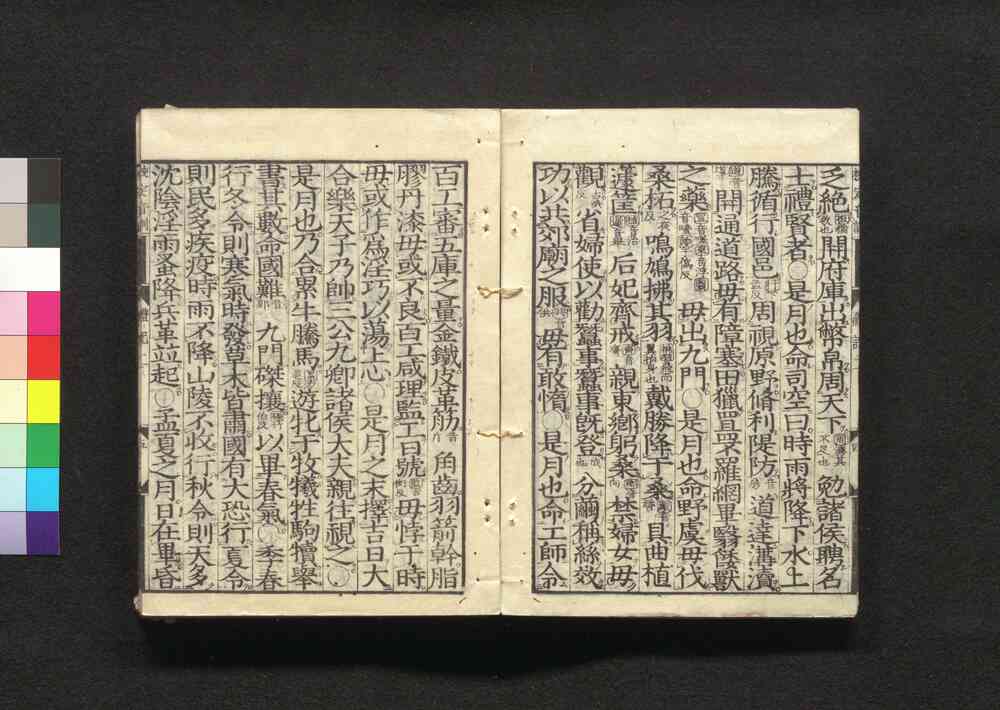 乏絶開府庫出幣帛周天下不足也勉諸侯聘名
士禮賢者○是月也命司空曰時雨將降下水上
騰循行國邑周視原野脩利隄防道達溝瀆
開通道路毋有障塞田獵罝罘羅網畢翳餧獸
之藥毋出九門○是月也命野虞毋伐
桑柘之夜反鳴鳩拂其羽戴勝降于桑具曲植
蘧筐后妃齊戒親東鄉躬桑禁婦女毋
觀省婦使以勸蠶事蠶事既登分繭稱絲效
功以共郊廟之服毋有敢惰○是月也命工師令
百工審五庫之量金鐵皮革筋角齒羽箭幹脂
膠丹漆毋或不良百工咸理監工日號毋悖于時
毋或作爲淫巧以蕩上心○是月之末擇吉日大
合樂天子乃帥三公九卿諸侯大夫親往視之○
是月也乃合累牛騰馬遊牝于牧犧牲駒犢舉
書其數命國難九門磔攘以畢春氣○季春
行冬令則寒氣時發草木皆肅國有大恐行夏令
則民多疾疫時雨不降山陵不收行秋令則天多
沈陰淫雨蚤降兵革並起○孟夏之月日在畢昏